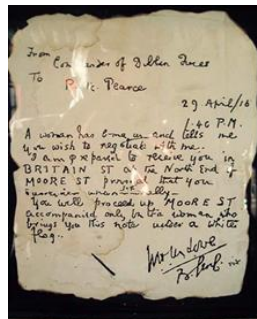 From
Commander of Dublin Forces
To
P. H. Pearce
29 April/16
1.40 P.M.
A woman has come in and tells me
you wish to negotiate with me.
I am prepared to receive you in
BRITAIN ST at the North End of
MOORE ST provided that you
surrender unconditionally
You will proceed up MOORE ST
accompanied only by the woman who
brings you this note under a white
flag.